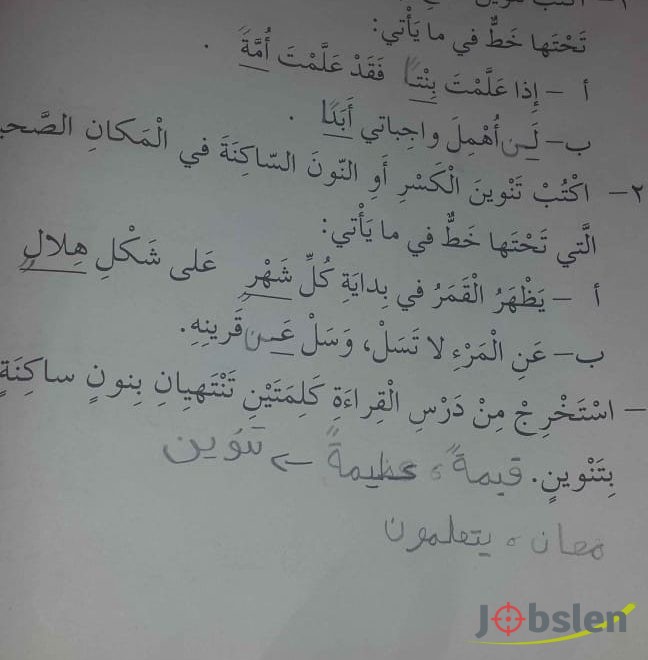 تَحْتَها خَطٌّ في ما يَأْتي:
أ – إِذا عَلَّمْتَ بِنْتاً فَقَدْ عَلَّمْتَ أُمَّةً .
ب– لَن أُهْمِلَ واجِباتي أَبَدًا .
٢– اكْتُبْ تَنْوينَ الْكَسْرِ أَوِ النّونَ السّاكِنَةَ في الْمَكانِ
الَّتي تَحْتَها خَطٌّ في ما يَأْتي:
أ – يَظْهَرُ الْقَمَرُ في بِدايَةِ كُلِّ شَهْرٍ عَلى شَكْلِ هِلالٍ
ب– عَنِ الْمَرْءِ لا تَسَلْ، وَسَلْ عَن قَرينِهِ.
– اسْتَخْرِجْ مِنْ دَرْسِ الْقِراءَةِ كَلِمَتَيْنِ تَنْتَهِيانِ بِنونٍ ساكِنَةٍ
بِتَنْوينٍ. قيمةً ، عظيمةً -> تنوين
معان ، يتعلمون
Jobslen